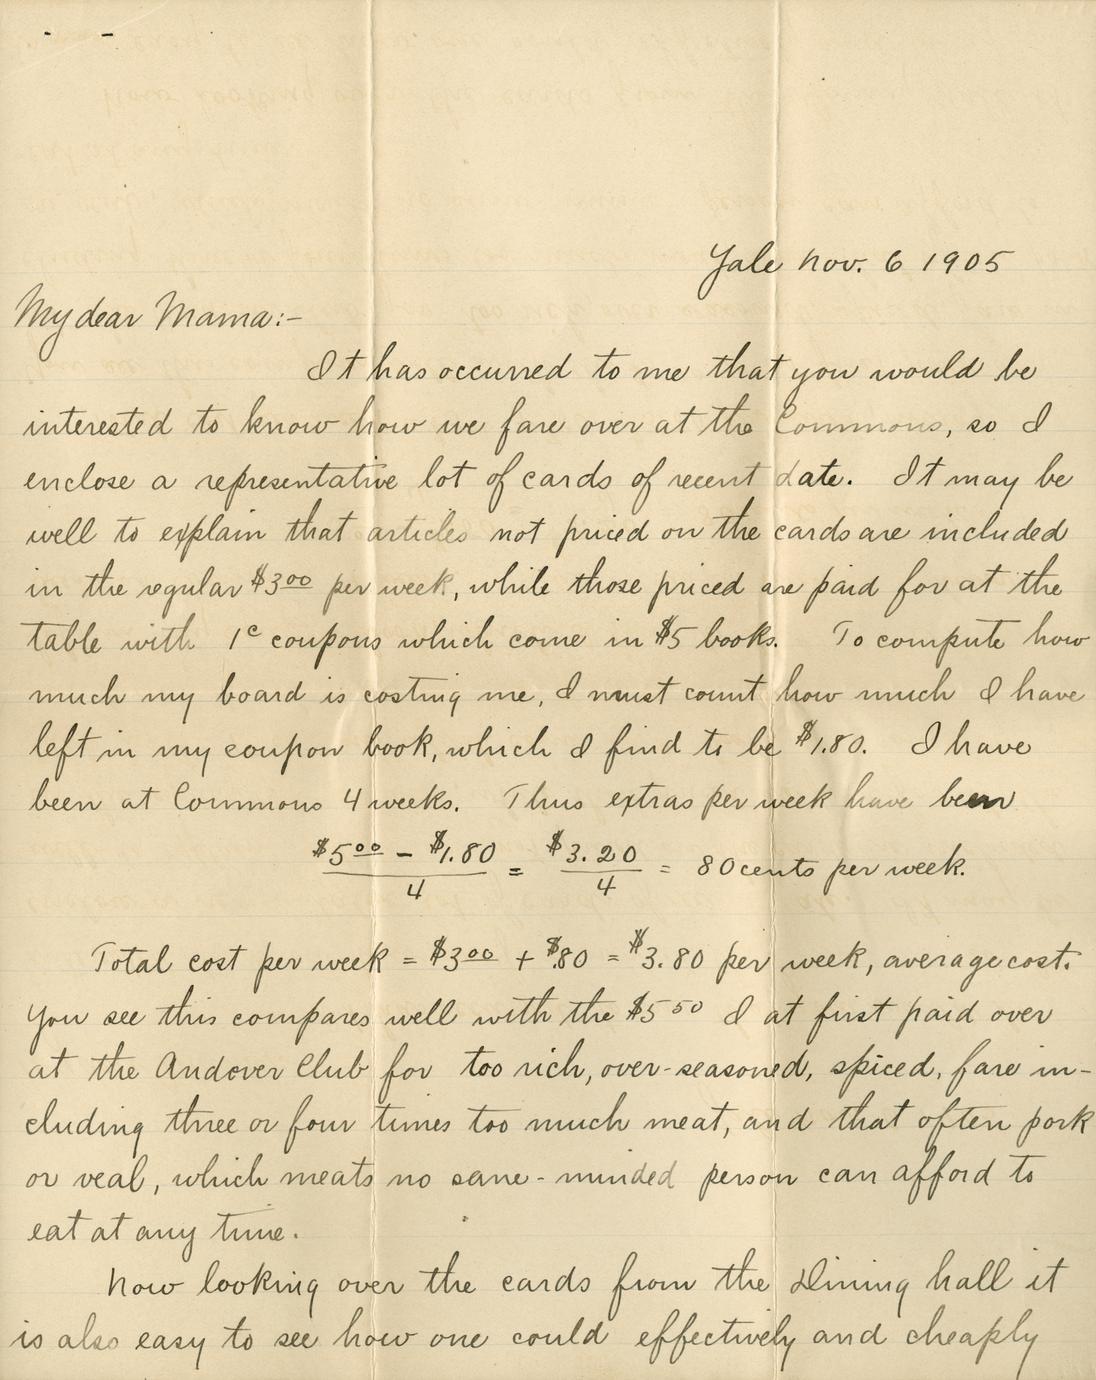 Yale Nov. 6 1905
My dear Mama:-
It has occurred to me that you would be
interested to know how we fare over at the Commons, so I
enclose a representative lot of cards of recent date. It may be
well to explain that articles not priced on the cards are included
in the regular $3 00 per week, while those priced are paid for at the
table with 1c coupons which come in $5 books. To compute how
much my board is costing me, I must count how much I have
left in my coupon book, which I find to be $1.80. I have
been at Commons 4 weeks. Thus extras per week have been
$5 00 - $1.80 / 4 = $3.20 / 4 = 80 cents per week.
Total cost per week = $3 00 + $.80 = $3.80 per week, average cost.
You see this compares well with the $5 50 I at first paid over
at the Andover Club for too rich, over-seasoned, spiced, fare in-
cluding three or four times too much meat, and that often pork
or veal, which meats no sane-minded person can afford to
eat at any time.
Now looking over the cards from the Dining hall it
is also easy to see how one could effectively and cheaply